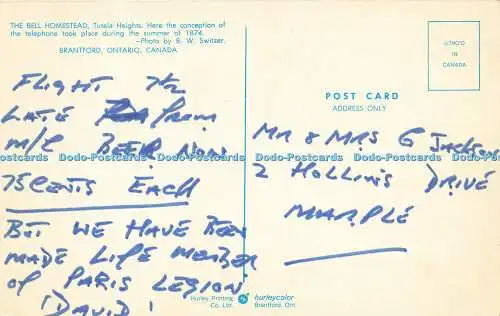 THE BELL HOMESTEAD, Tutela Heights. Here the conception of
the telephone took place during the summer of 1874.
—Photo by B. W. Switzer.
BRANTFORD, ONTARIO, CANADA
LITHO'D
IN
CANADA
POST CARD
ADDRESS ONLY
FLIGHT 7½
LATE FROM
M/C BEER NOW
75 CENTS EACH
BUT WE HAVE BEEN
MADE LIFE MEMBER
OF PARIS LEGION
'DAVID'
MR & MRS G JACKSON
2 HOLLINS DRIVE
MARPLE
Dodo-Postcards Dodo-Postcards Dodo-Postcards Dodo-Postcards
Hurley Printing
Co. Ltd.
hurleycolor
Brantford, Ont.